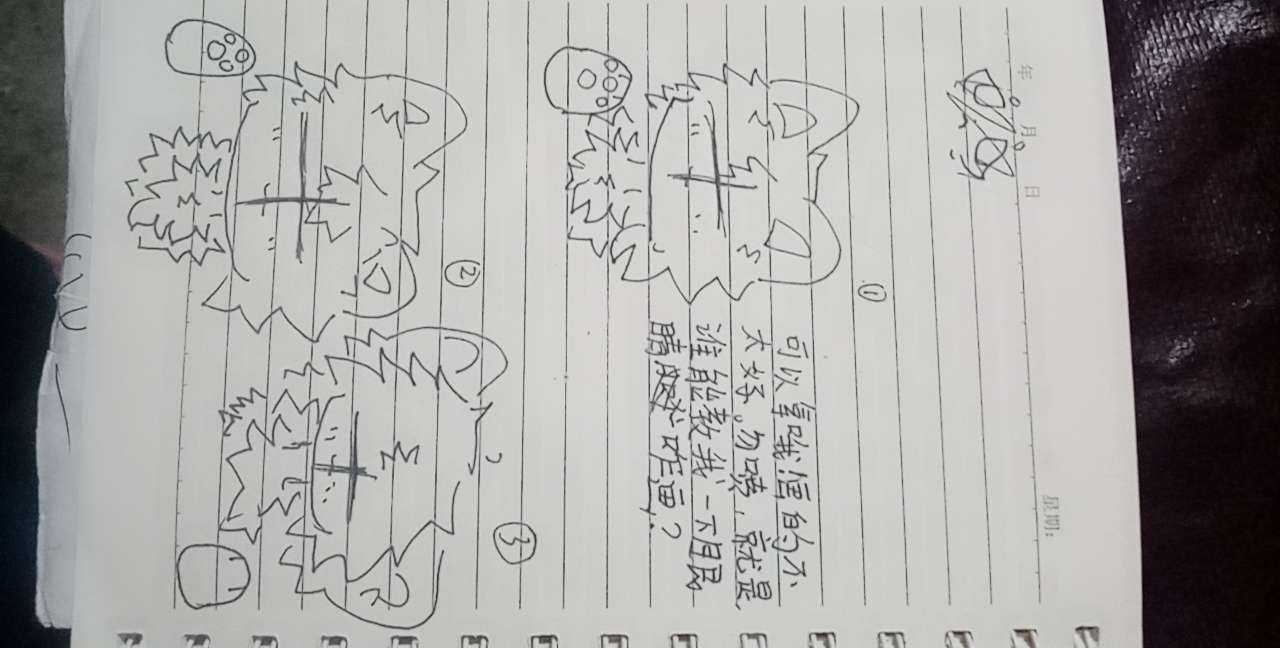 年 月 日
星期:
①
可以拿哦画的不
太好。勿喷,就是
谁能教我一下眼
睛腿咋画?
②
③